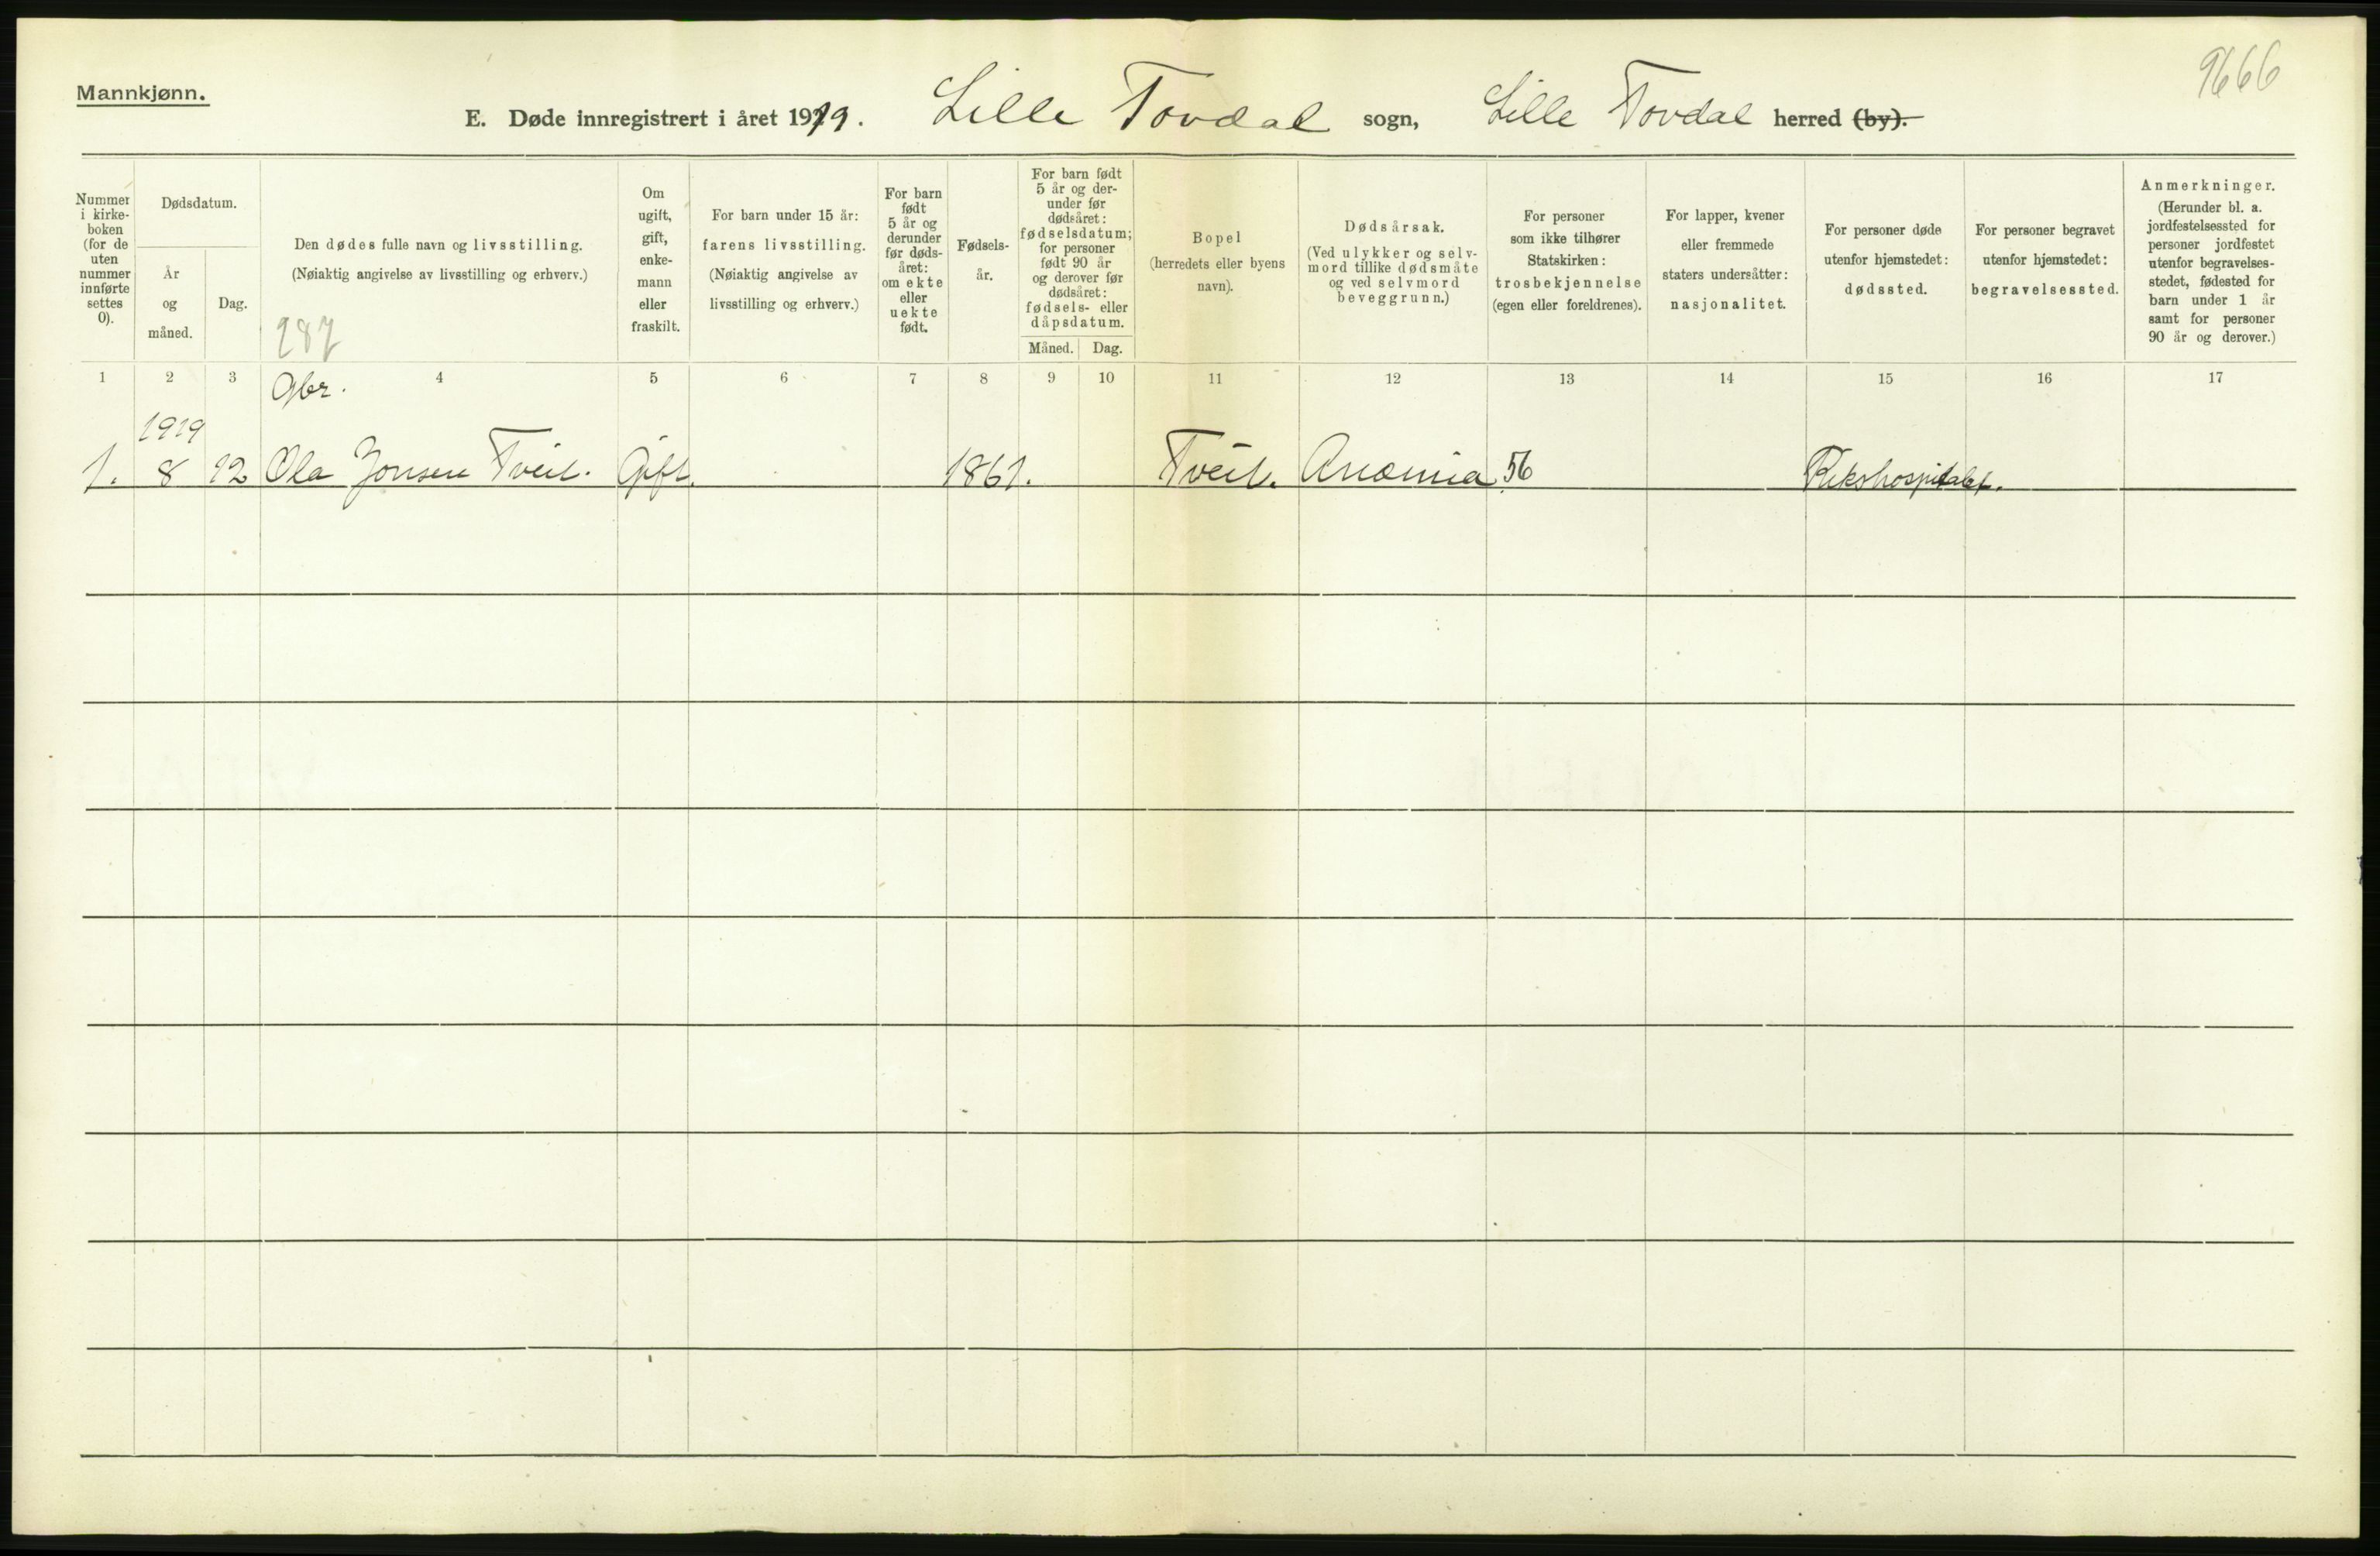 9666
Mannkjønn.
E. Døde innregistrert i året 1919. Lille Tovdal sogn, Lille Tovdal herred (by).
Nummer i kirke- boken (for de uten nummer innførte settes 0).
Dødsdatum.
År og måned.
Dag.
Den dødes fulle navn og livsstilling.
(Nøiaktig angivelse av livsstilling og erhverv.)
287
Om ugift, gift, enke- mann eller fraskilt.
For barn under 15 år:
farens livsstilling.
(Nøiaktig angivelse av
livsstilling og erhverv.)
For barn født 5 år og derunder før døds- året: om ekte eller uekte født.
Fødsels- år.
For barn født 5 år og der- under før dødsåret: fødselsdatum; for personer født 90 år og derover før dødsåret: fødsels- eller dåpsdatum.
Måned. Dag.
Bopel
(herredets eller byens
navn).
Dødsårsak.
(Ved ulykker og selv-
mord tillike dødsmåte
og ved selvmord
beveggrunn.)
For personer
som ikke tilhører
Statskirken:
trosbekjennelse
(egen eller foreldrenes).
For lapper, kvener
eller fremmede
staters undersåtter:
nasjonalitet.
For personer døde
utenfor hjemstedet:
dødssted.
For personer begravet
utenfor hjemstedet:
begravelsessted.
Anmerkninger.
(Herunder bl. a.
jordfestelsessted for
personer jordfestet
utenfor begravelses-
stedet, fødested for
barn under 1 år
samt for personer
90 år og derover.)
1 2 3 4 5 6 7 8 9 10 11 12 13 14 15 16 17
Gbr.
1919
1. 8 12 Ola Jonsen Tveit. Gift. 1861. Tveit. Anæmia 56 Rikshospitalet.